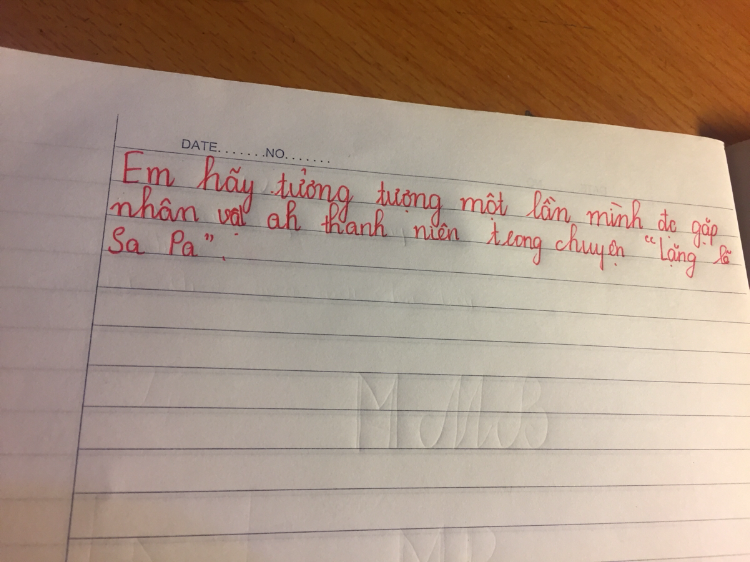 DATE.......NO.......
Em hãy tưởng tượng một lần mình đc gặp
nhân vật ah thanh niên trong chuyện "Lặng lẽ
Sa Pa".